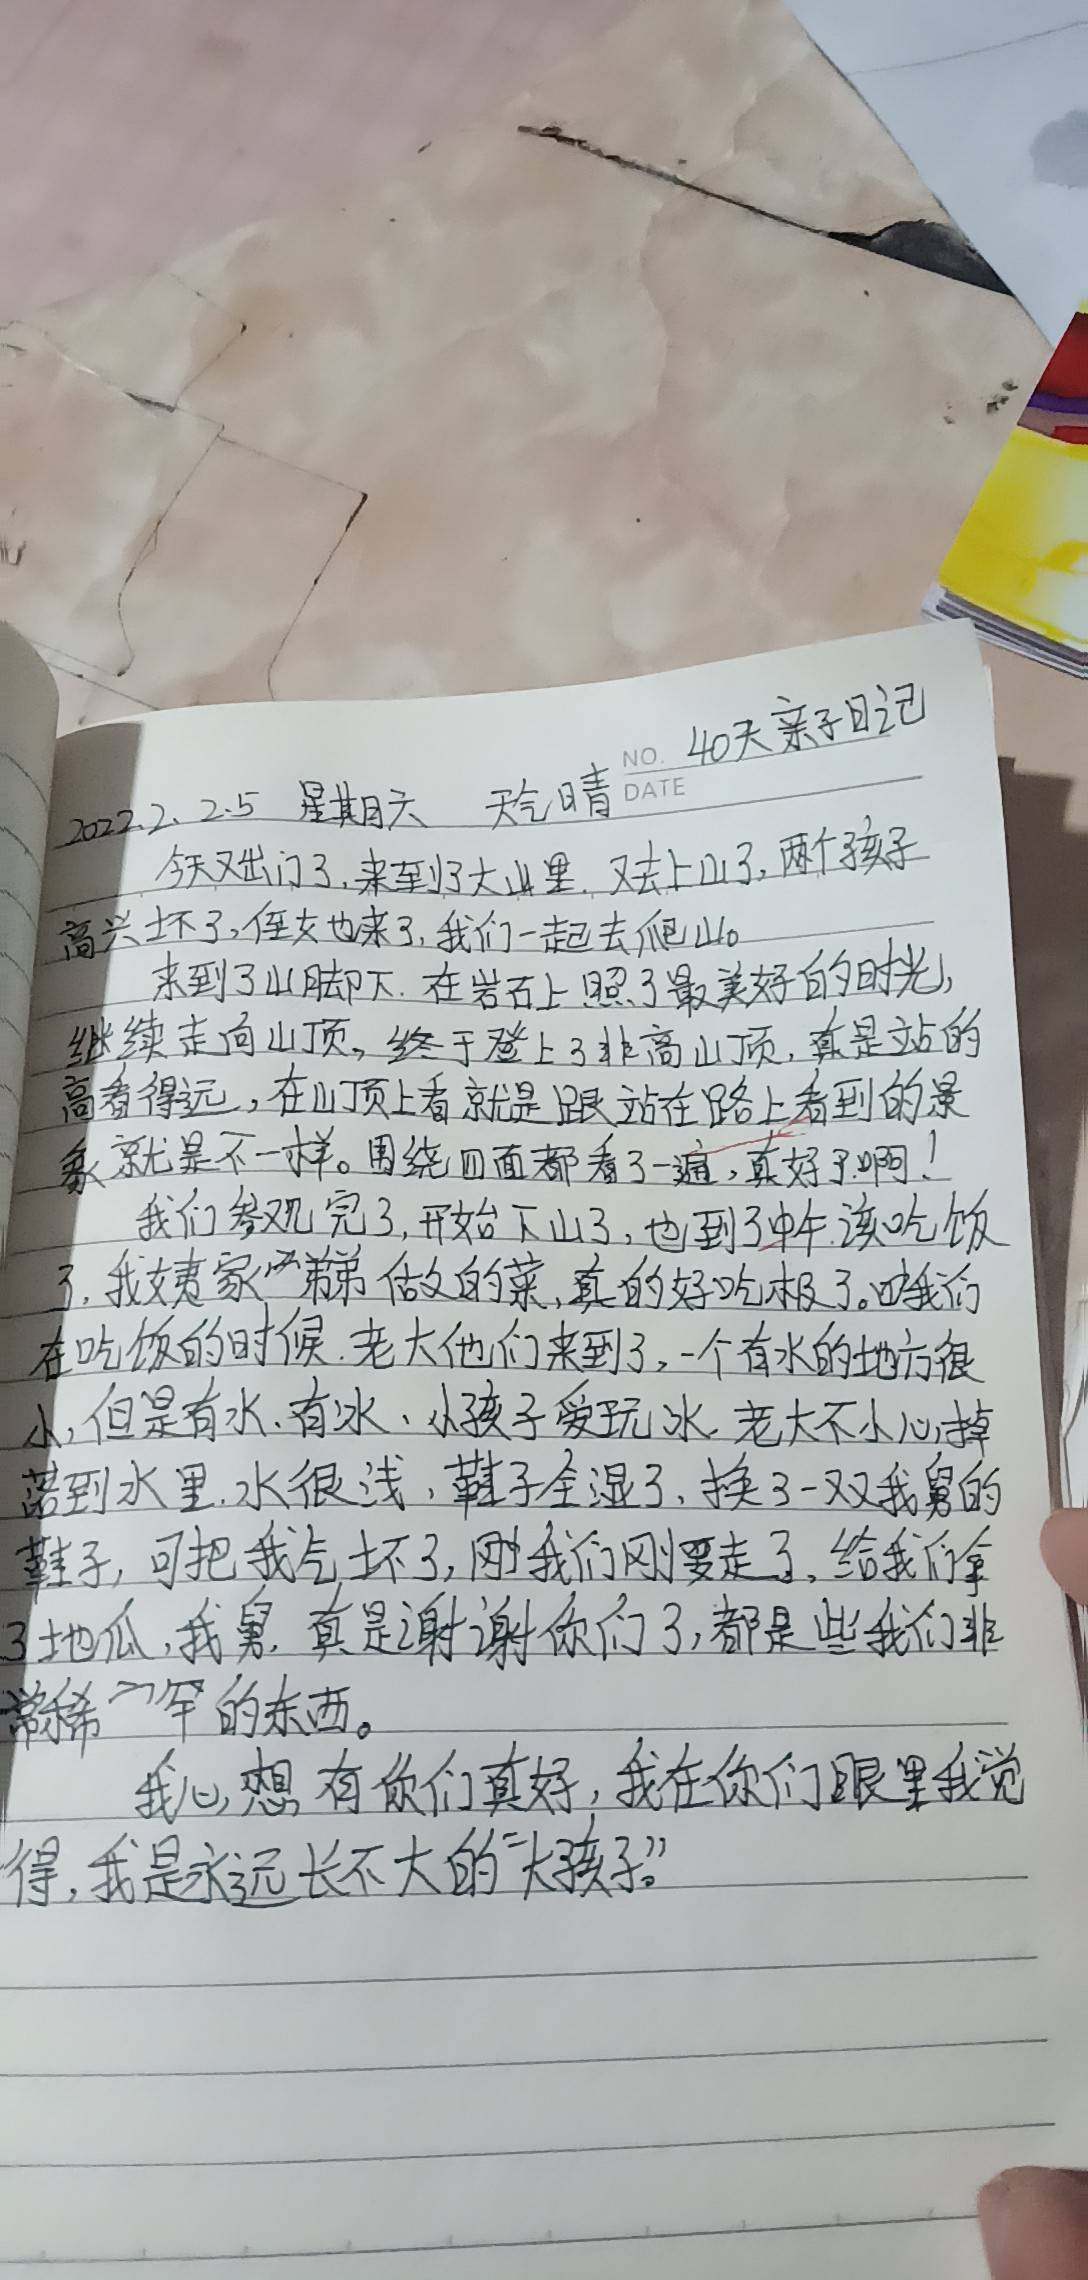 NO. 40天亲子日记
DATE
2022.2. 2.5 星期六 天气晴
今天又出门了,来到了大山里.又去上山了,两个孩子
高兴坏了,侄女也来了,我们一起去爬山。
来到了山脚下.在岩石上照了最美好的时光,
继续走向山顶,终于登上了非高山顶,真是站的
高看得远,在山顶上看就是跟站在路上看到的景
象就是不一样。围绕四面都看了一遍,真好了啊!
我们参观完了,开始下山了,也到了中午.该吃饭
了,我姨家弟弟做的菜,真的好吃极了。我们
在吃饭的时候.老大他们来到了,一个有水的地方很
小,但是有水.有冰、小孩子爱玩冰.老大不小心掉
落到水里.水很浅,鞋子全湿了,换了一双我舅的
鞋子,可把我气坏了,刚我们刚要走了,给我们拿
了地瓜,我舅,真是谢谢你们了,都是些我们非
常稀罕的东西。
我心想有你们真好,我在你们眼里我觉
得,我是永远长不大的“大孩子。”